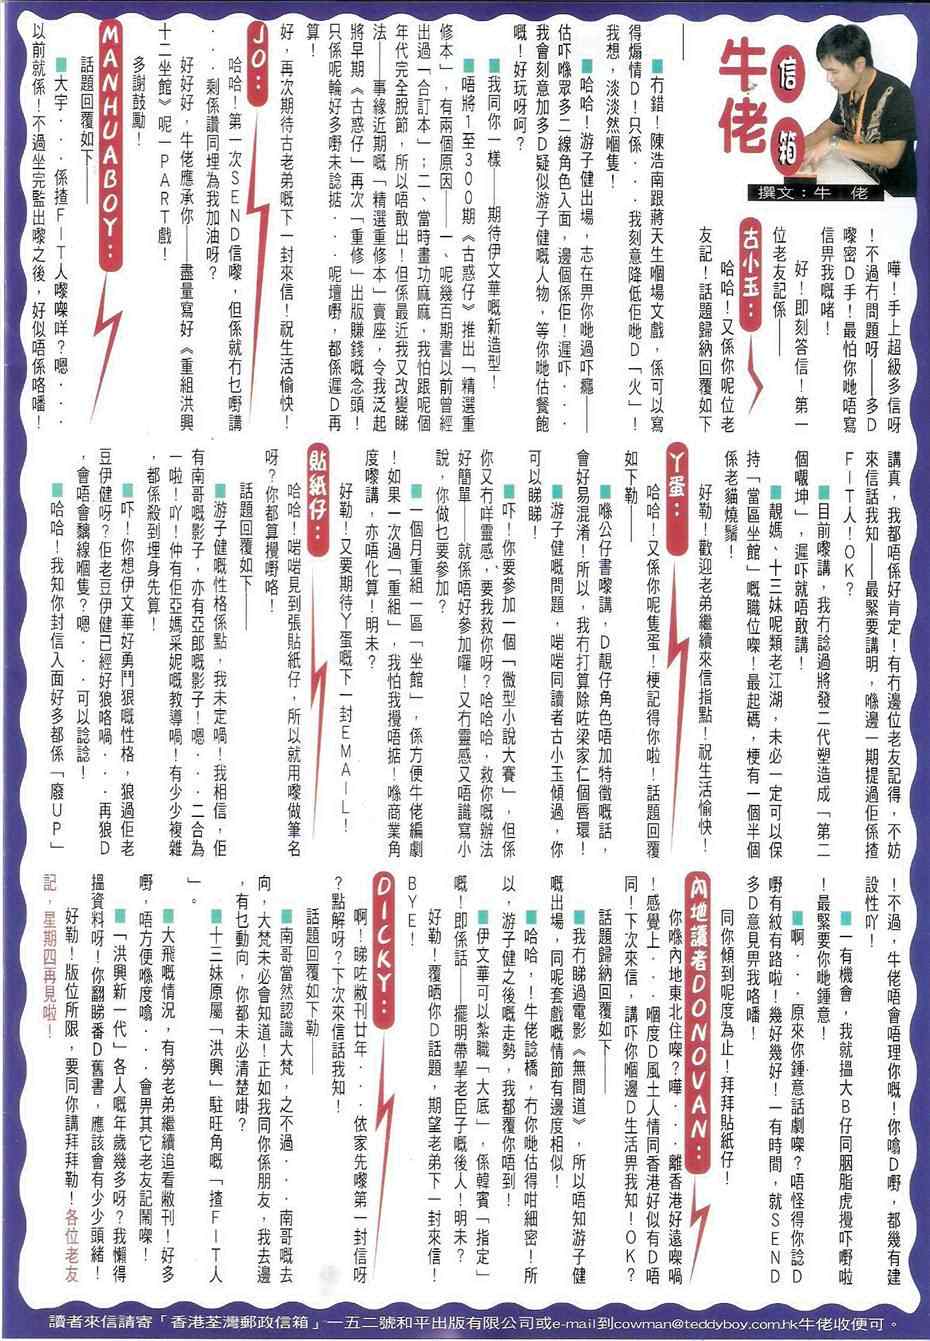 牛佬
信箱
撰文：牛　佬
嘩！手上超級多信呀
！不過冇問題呀——多D
嚟密D手！最怕你哋唔寫
信畀我嘅啫！
好！即刻答信！第一
位老友記係——
古小玉：
哈哈！又係你呢位老
友記！話題歸納回覆如下
——
■冇錯！陳浩南跟蔣天生嗰場文戲，係可以寫
得煽情D！只係．．．我刻意降低佢哋D「火」！
我想，淡淡然嗰隻！
■哈哈！游子健出場，志在畀你哋過吓癮——
估吓喺眾多二線角色入面，邊個係佢！遲吓．．．
我會刻意加多D疑似游子健嘅人物，等你哋估餐飽
嘅！好玩呀呵？
■我同你一樣——期待伊文華嘅新造型！
■唔將1至300期《古惑仔》推出「精選重
修本」，有兩個原因——一、呢幾百期書以前曾經
出過「合訂本」；二、當時畫功麻麻，我怕跟呢個
年代完全脫節，所以唔敢出！但係最近我又改變睇
法——事緣近期嘅「精選重修本」賣座，令我泛起
將早期《古惑仔」再次「重修」出版賺錢嘅念頭！
只係呢輪好多嘢未諗掂．．．呢壇嘢，都係遲D再
算！
好，再次期待古老弟嘅下一封來信！祝生活愉快！
JO：
哈哈！第一次SEND信嚟，但係就冇乜嘢講
．．．剩係讚同埋為我加油呀？
好好好，牛佬應承你——盡量寫好《重組洪興
十二坐館》呢一PART戲！
多謝鼓勵！
MANHUABOY：
話題回覆如下——
■大宇．．．係揸FIT人嚟㗎咩？嗯．．．
以前就係！不過坐完監出嚟之後，好似唔係咯噃！
講真，我都唔係好肯定！有冇邊位老友記得，不妨
來信話我知——最緊要講明，喺邊一期提過佢係揸
FIT人！OK？
■目前嚟講，我冇諗過將發二代塑造成「第二
個曦坤」，遲吓就唔敢講！
■靚媽、十三妹呢類老江湖，未必一定可以保
持「當區坐館」嘅職位㗎！最起碼，梗有一個半個
係老貓燒鬚！
好勒！歡迎老弟繼續來信指點！祝生活愉快！
丫蛋：
哈哈！又係你呢隻蛋！梗記得你啦！話題回覆
如下勒——
■喺公仔書嚟講，D靚仔角色唔加特徵嘅話，
會好易混淆！所以，我冇打算除咗梁家仁個唇環！
■游子健嘅問題，啱啱同讀者古小玉傾過，你
可以睇睇！
■吓！你要參加一個「微型小說大賽」，但係
你又冇咩靈感，要我救你呀？哈哈哈，救你嘅辦法
好簡單——就係唔好參加囉！又冇靈感又唔識寫小
說，你做乜要參加？
■一個月重組一區「坐館」，係方便牛佬編劇
！如果一次過「重組」，我怕我攪唔掂！喺商業角
度嚟講，亦唔化算！明未？
好勒！又要期待丫蛋嘅下一封EMAIL！
貼紙仔：
哈哈！啱啱見到張貼紙仔，所以就用嚟做筆名
呀？你都算攪嘢咯！
話題回覆如下——
■游子健嘅性格係點，我未定喎！我相信，佢
有南哥嘅影子，亦有亞郎嘅影子！嗯．．．二合為
一啦！吖！仲有佢亞媽采妮嘅教導喎！有少少複雜
，都係殺到埋身先算！
■吓！你想伊文華好勇鬥狠嘅性格，狼過佢老
豆伊健呀？佢老豆伊健已經好狼咯喎．．．再狼D
，會唔會黐線嗰隻？嗯．．．可以諗諗！
■哈哈！我知你封信入面好多都係「廢UP」
！不過，牛佬唔會唔理你嘅！你噏D嘢，都幾有建
設性吖！
■一有機會，我就搵大B仔同胭脂虎攪吓嘢啦
！最緊要你哋鍾意！
■啊．．．原來你鍾意話劇㗎？唔怪得你諗D
嘢有紋有路啦！幾好幾好！一有時間，就SEND
多D意見畀我咯噃！
同你傾到呢度為止！拜拜貼紙仔！
內地讀者DONOVAN：
你喺內地東北住㗎？嘩．．．離香港好遠㗎喎
！感覺上．．．嗰度D風土人情同香港好似有D唔
同！下次來信，講吓你嗰邊D生活畀我知！OK？
話題歸納回覆如下——
■我冇睇過電影《無間道》，所以唔知游子健
嘅出場，同呢套戲嘅情節有邊度相似！
■哈哈，！牛佬諗橋，冇你哋估得咁細密！所
以，游子健之後嘅走勢，我都覆你唔到！
■伊文華可以紮職「大底」，係韓賓「指定」
嘅！即係話——擺明帶挈老臣子嘅後人！明未？
好勒！覆晒你D話題，期望老弟下一封來信！
BYE！
DICKY：
啊！睇咗敝刊廿年．．．依家先嚟第一封信呀
？點解呀？下次來信話我知！
話題回覆如下勒——
■南哥當然認識大梵，之不過．．．南哥嘅去
向，大梵未必會知道！正如我同你係朋友，我去邊
，有乜動向，你都未必清楚啩？
■十三妹原屬「洪興」駐旺角嘅「揸FIT人
」。
■大飛嘅情況，有勞老弟繼續追看敝刊！好多
嘢，唔方便喺度噏．．．會畀其它老友記鬧㗎！
■「洪興新一代」各人嘅年歲幾多呀？我懶得
搵資料呀！你翻睇番D舊書，應該會有少少頭緒！
好勒！版位所限，要同你講拜拜勒！各位老友
記，星期四再見啦！
讀者來信請寄「香港荃灣郵政信箱」一五二號和平出版有限公司或e-mail到cowman@teddyboy.com.hk牛佬收便可。